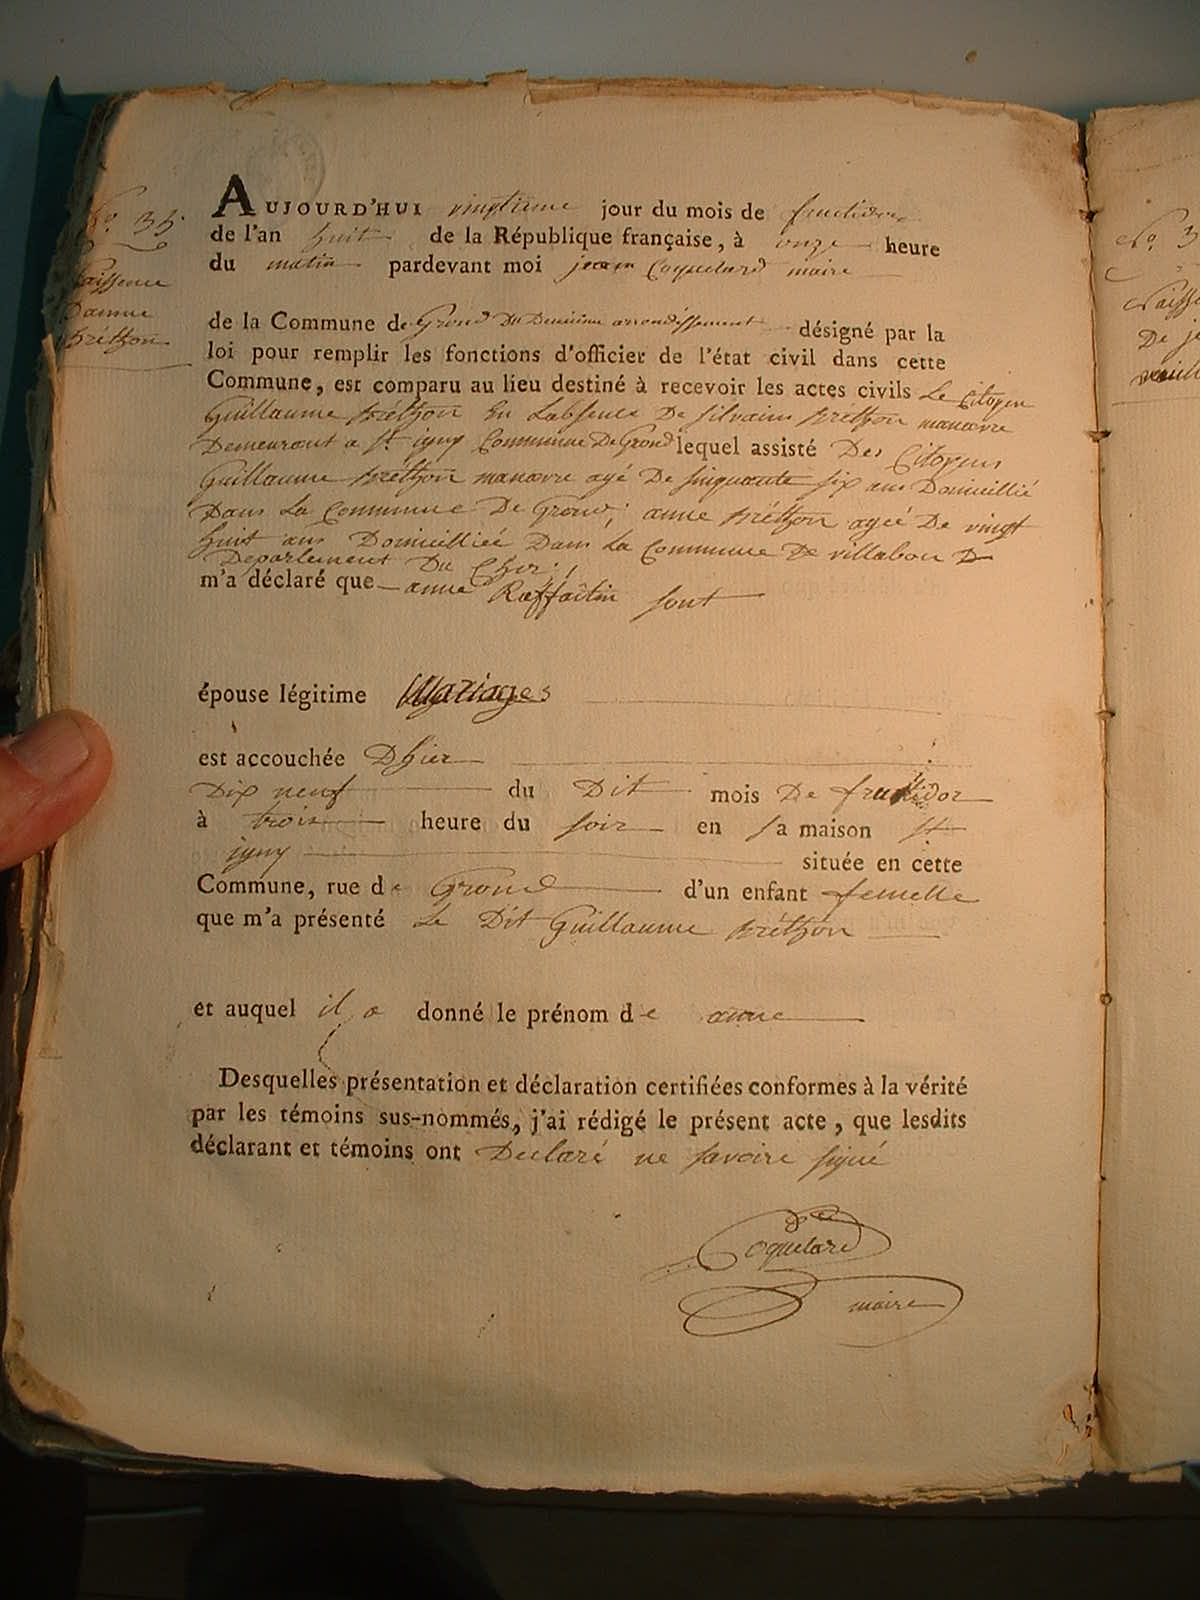 No. 35.
Naissence
Danne
Bréthon
AUJOURD'HUI vingtieme jour du mois de fructidor
de l'an huit de la République française, à onze heure
du matin pardevant moi jean Coquelard maire
de la Commune de Grond Du Deuxieme arrondissement désigné par la
loi pour remplir les fonctions d'officier de l'état civil dans cette
Commune, est comparu au lieu destiné à recevoir les actes civils Le Citoyen
Guillaume Bréthon En Labsence De Silvain Brethon manœvre
Demeurant a St. igny Commune De Grond lequel assisté Des Citoyens
Guillaume Bréthon manœvre agé De sinquante six ans Domicillié
Dans La Commune De Grond; anne Bréthon ageé De vingt
huit ans Domicilliée Dans La Commune De villabon D
Departement Du Cher;
m'a déclaré que anne Raffaitin sont
épouse légitime Mariages
est accouchée Dhier
Dix neuf du Dit mois De fructidor
à trois heure du soir en sa maison St
igny située en cette
Commune, rue de Grond d'un enfant femelle
que m'a présenté Le Dit Guillaume Bréthon
et auquel il a donné le prénom de anne
Desquelles présentation et déclaration certifiées conformes à la vérité
par les témoins sus-nommés, j'ai rédigé le présent acte, que lesdits
déclarant et témoins ont Declaré ne savoire signé
Coquelard
maire
No. 3
Naisse
De je